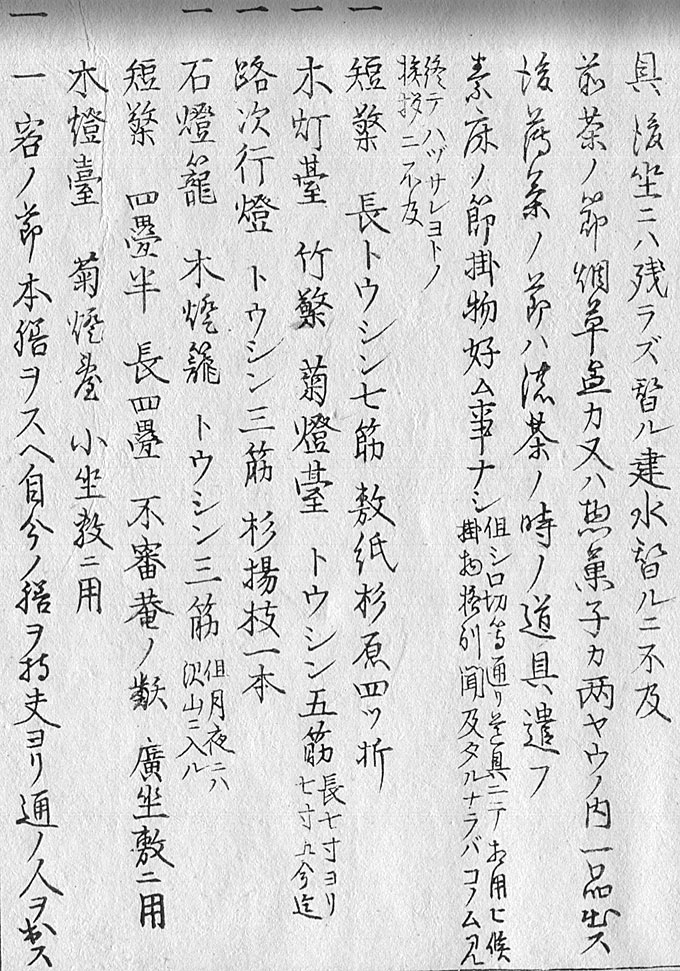 具後坐ニハ残ラズ皆ル建水皆ルニ不及
前茶ノ節烟草盆カ又ハ惣菓子カ両ヤウノ内一品出ス
後薄茶ノ節ハ濃茶ノ時ノ道具遣フ
素床ノ節掛物好ム事ナシ但シ口切等通リ道具ニテ相用ヒ候
掛物格別聞及タルナラバコノム見
終テハヅサレヨトノ
挨拶ニ不及
一短檠 長トウシン七筋敷紙杉原四ツ折
一木灯䑓 竹檠 菊燈䑓 トウシン五筋長七寸ヨリ
七寸五分迄
一路次行燈 トウシン三筋 杉揚枝一本
一石燈籠 木燈籠 トウシン三筋但月夜ニハ
沢山ニ入ル
短檠 四疊半 長四疊 不審菴ノ類 廣坐敷ニ用
木燈臺 菊燈臺 小坐敷ニ用
一一 客ノ節本膳ヲスヘ自分ノ膳ヲ持夫ヨリ通ノ人ヲ出ス